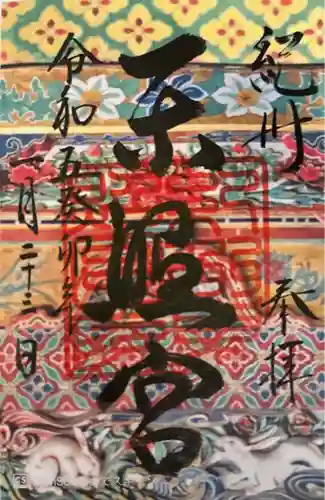 紀州 奉拝
東照宮
令和五癸卯年
一月二十三日